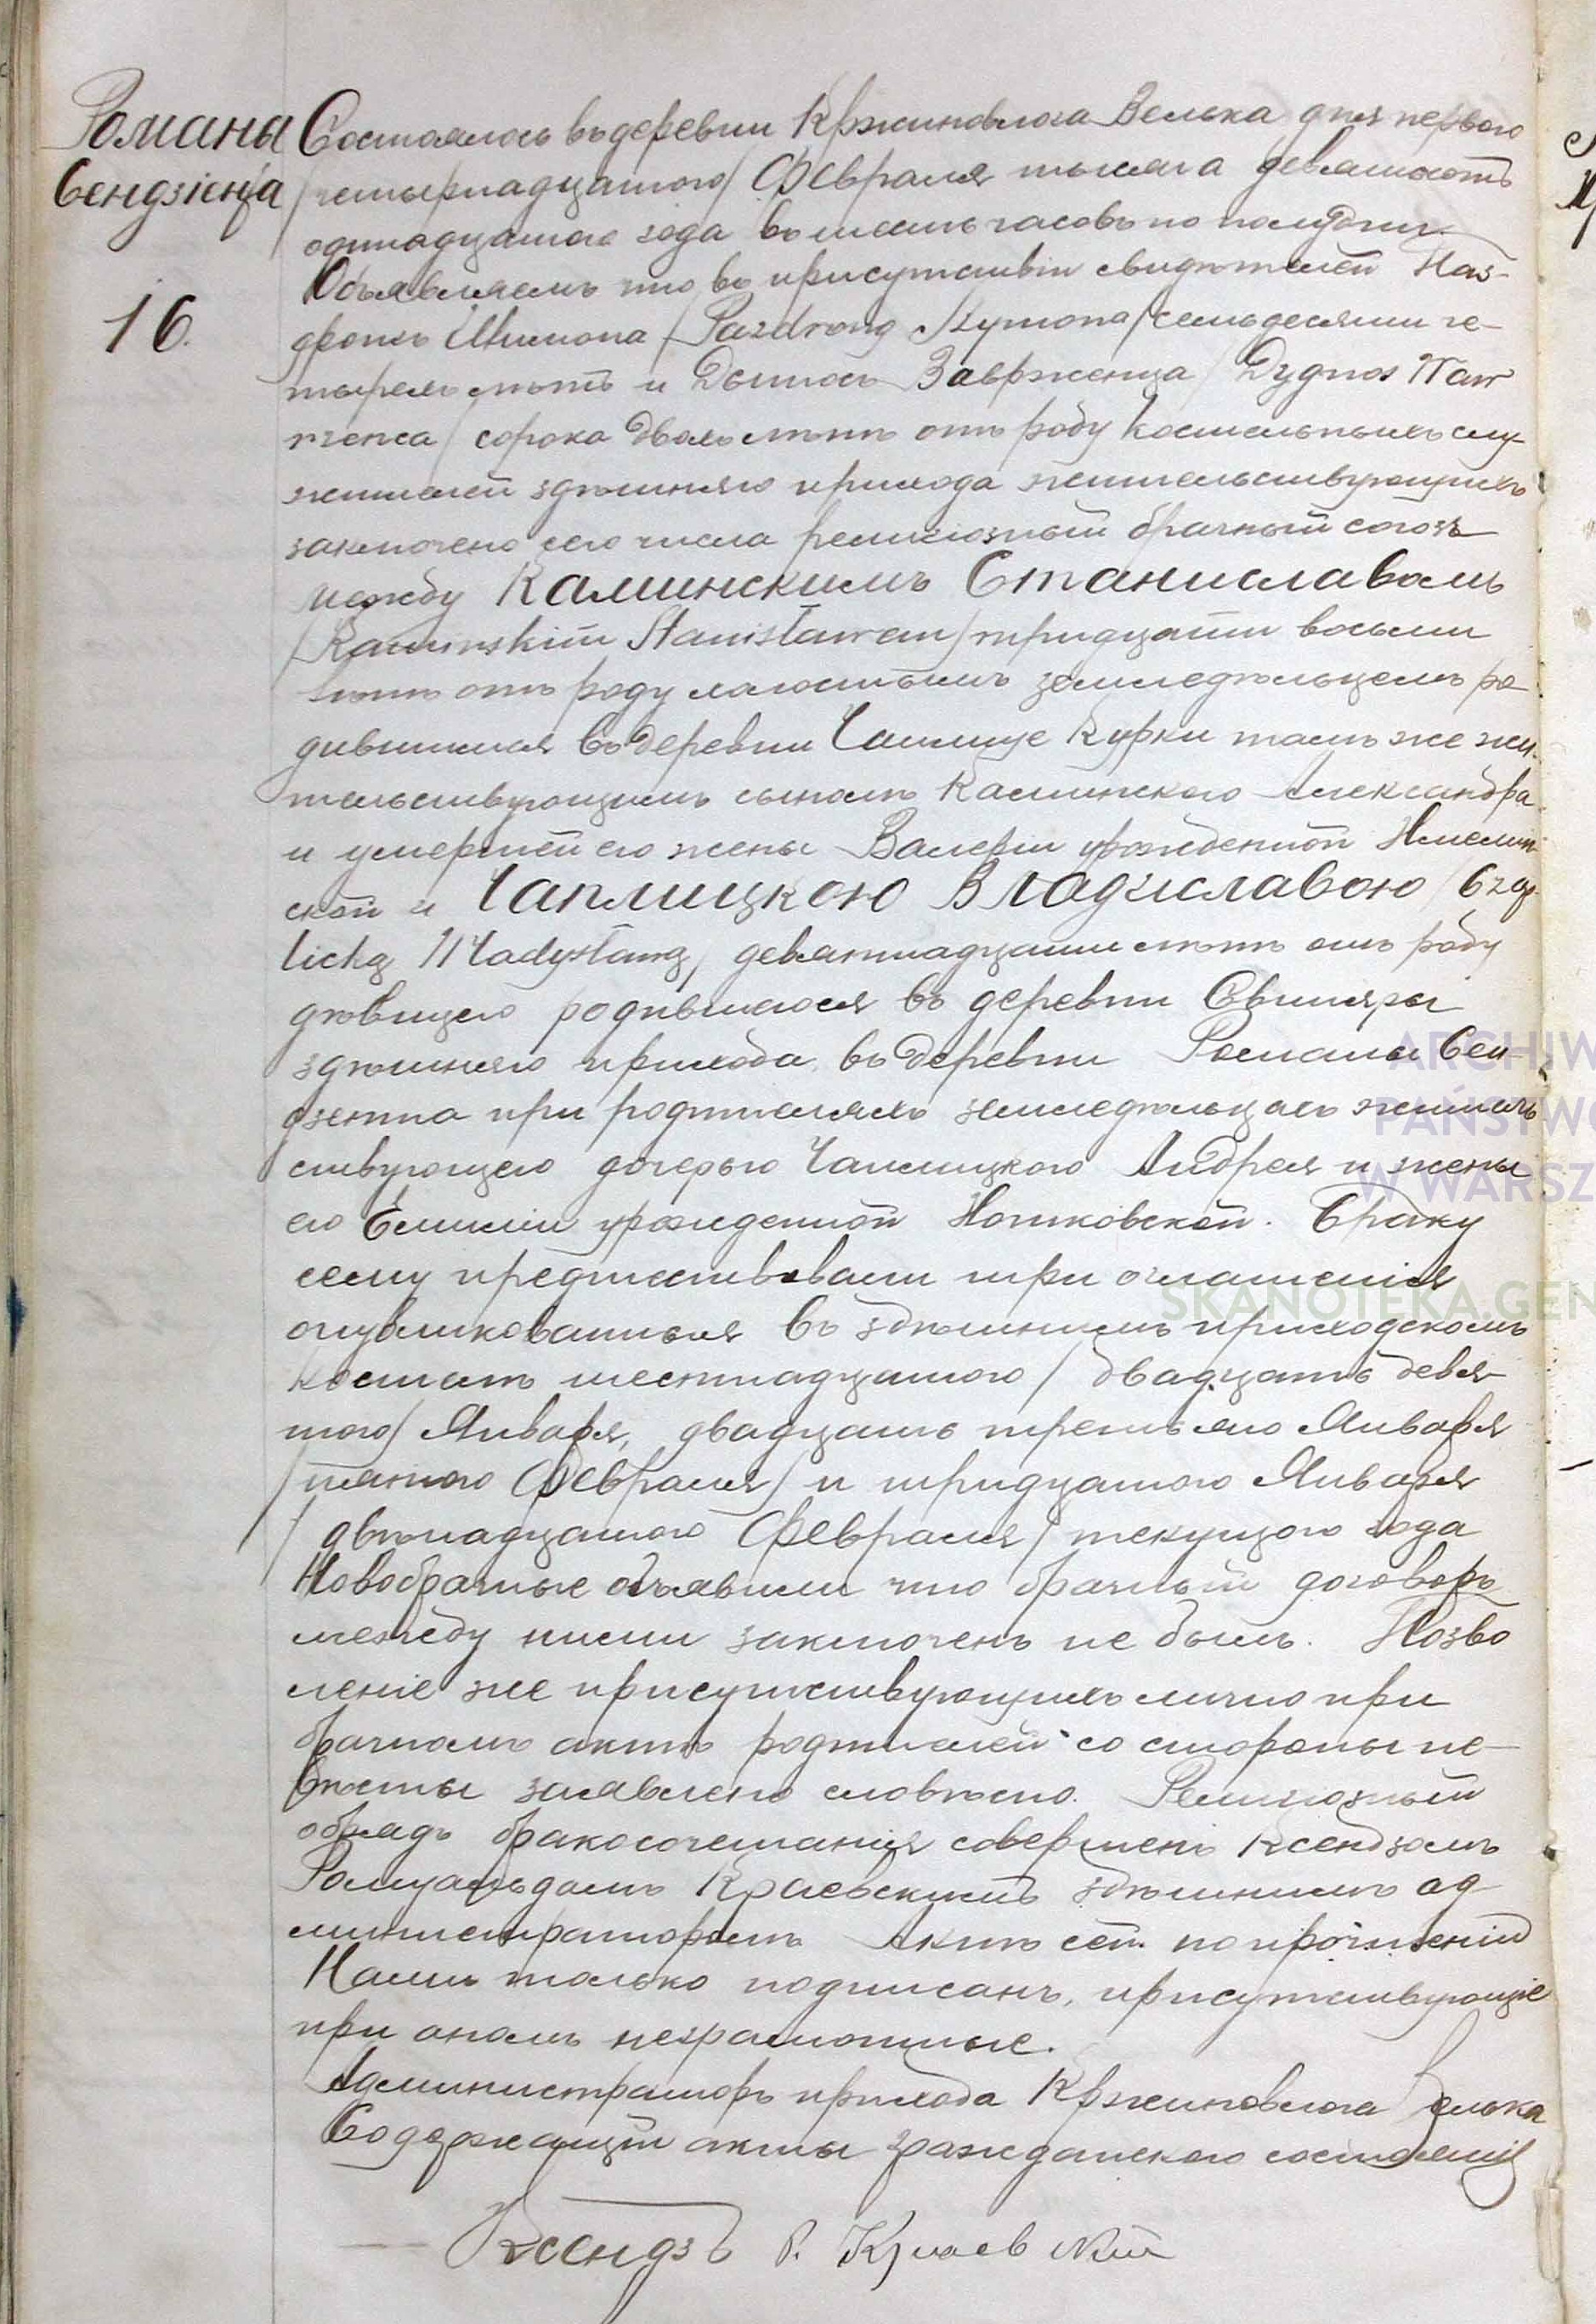 Романы
Сендзіенца
16.
Состоялось въ деревни Кржиновлога Велька дня перваго
/четырнадцатого/ Февраля тысяча девятьсотъ
одинадцатого года въ шесть часовъ по полудни.
Объявляемъ что въ присутствіи свидѣтелей Паз-
дронъ Шимона /Pazdrong Szymona/ семьдесяти че-
тырехъ лѣтъ и Дыгнось Заврженца /Dygnos Waw
rzenca/ сорока двохъ лѣтъ отъ роду костельныхъ слу-
жителей здѣшняго прихода жительствующихъ
заключено сего числа религіозный брачный союзъ
между Каминскимъ Станиславомъ
/Kaminskim Stanisławem/ тридцати восьми
лѣтъ отъ роду холостымъ земледѣльцемъ ро-
дившимся въ деревни Чаплице Курки тамъ же жи-
тельствующимъ сыномъ Каминского Александра
и умершей его жены Валеріи урожденной
ской и Чаплицкою Владиславою /Czap-
licką Władysławą/ девятнадцати лѣтъ отъ роду
дѣвицею родившеюся въ деревни Свиняры
здѣшняго прихода въ деревни Романы Сен-
дзента при родителяхъ земледѣльцахъ житель
ствующею дочерью Чаплицкого Андрея и жены
его Емиліи урожденной Ношковской. Браку
сему предшествовали три оглашенія
опубликованныя въ здѣшнимъ приходскомъ
костелѣ шестнадцатого /двадцать девя-
того/ Января, двадцать третьяго Января
/пятого Февраля/ и тридцатого Января
/двѣнадцатого Февраля/ текущого года
Новобрачные объявили что брачный договоръ
между ними заключенъ не былъ. Позво
леніе же присутствующихъ лично при
брачномъ актѣ родителей со стороны не-
вѣсты заявлено словѣсно. Религіозный
обрядъ бракосочетанія совершенъ Ксендзомъ
Ромуальдомъ Краевскимъ здѣшнимъ ад-
министраторомъ Актъ сей по прочтеніи
Нами только подписанъ, присутствующіе
при ономъ неграмотные.
Администраторъ прихода Кржиновлога Велька
Содержащій акты гражданского состоянія
Ксендзъ Р. Краевскій
ARCHIW
PAŃSTWO
W WARSZ
SKANOTEKA.GEN